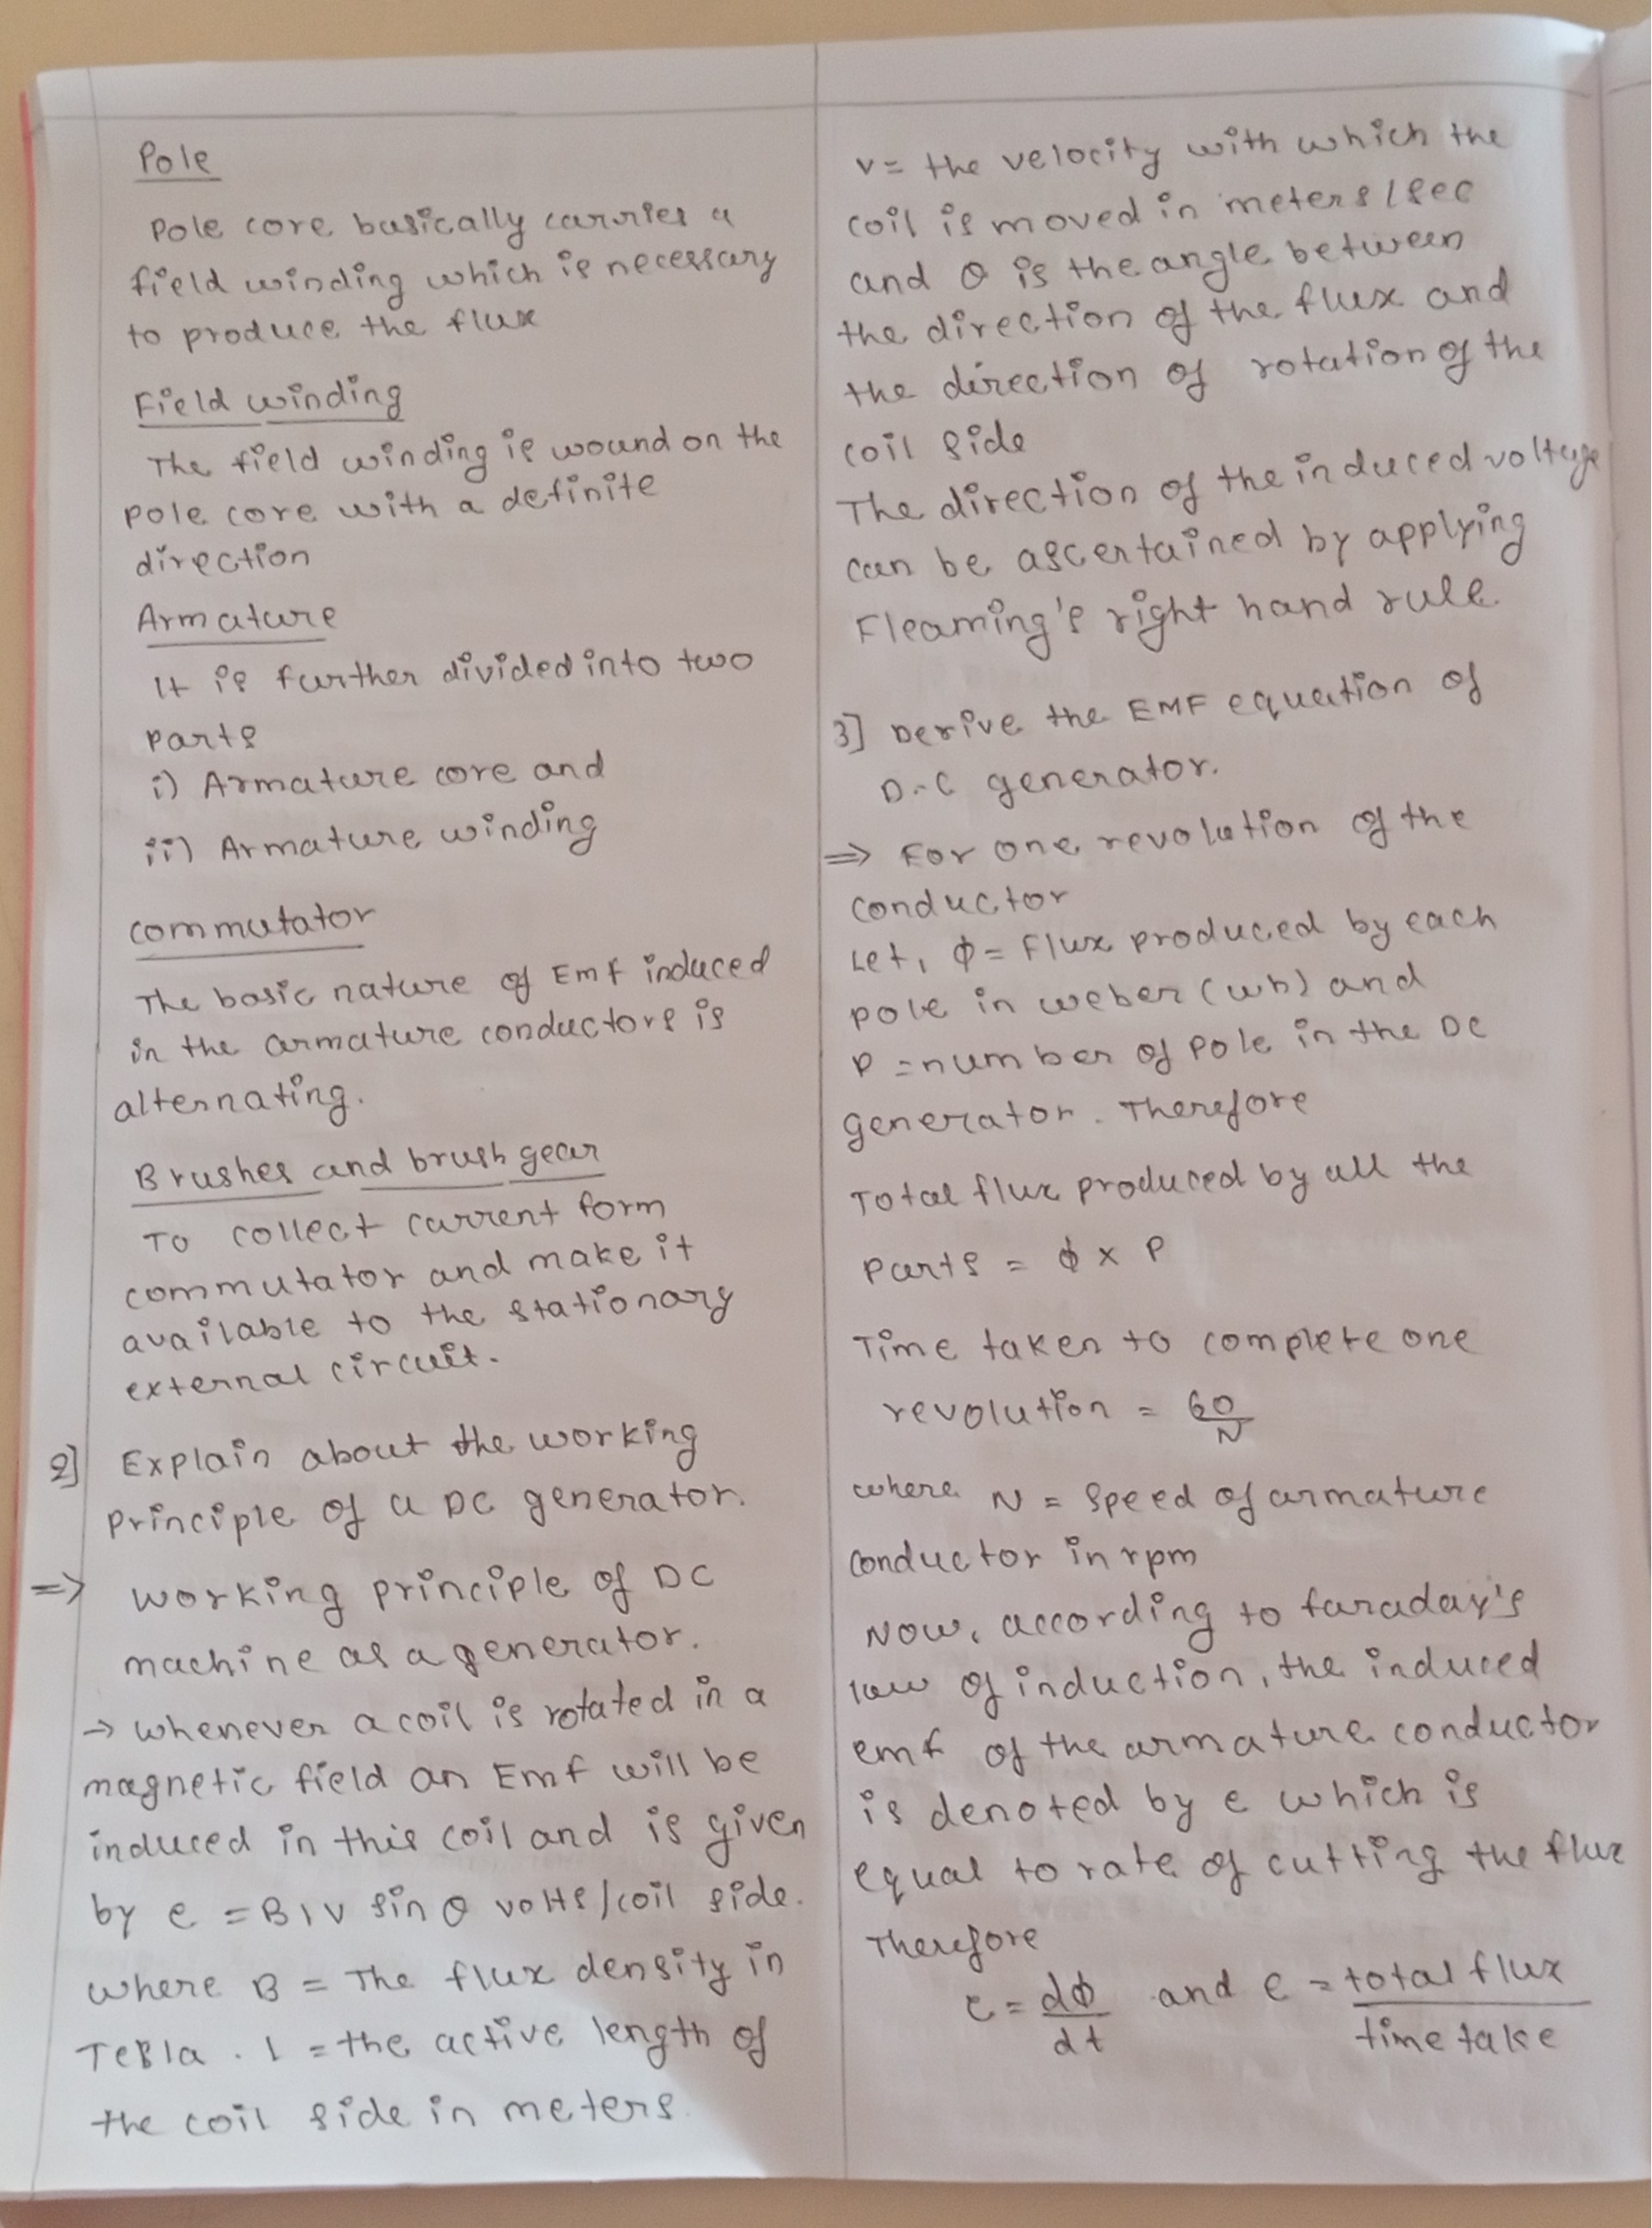 Pole
Pole core basically carries a
field winding which is necessary
to produce the flux
Field winding
The field winding is wound on the
pole core with a definite
direction
Armature
It is further divided into two
parts
i) Armature core and
ii) Armature winding
commutator
The basic nature of Emf induced
in the armature conductors is
alternating.
Brushes and brush gear
To collect current form
commutator and make it
available to the stationary
external circuit.
2] Explain about the working
principle of a DC generator.
=> working principle of DC
machine as a generator.
→ whenever a coil is rotated in a
magnetic field an Emf will be
induced in this coil and is given
by e = B l v sin θ volts/coil side.
where B = The flux density in
Tesla . l = the active length of
the coil side in meters
v = the velocity with which the
coil is moved in meters/sec
and θ is the angle between
the direction of the flux and
the direction of rotation of the
coil side
The direction of the induced voltage
can be ascertained by applying
Fleaming's right hand rule.
3] Derive the EMF equation of
D.C generator.
=> For one revolution of the
conductor
Let, ϕ = Flux produced by each
pole in weber (wb) and
P = number of pole in the DC
generator. Therefore
Total flux produced by all the
parts = ϕ x P
Time taken to complete one
revolution = 60/N
where N = speed of armature
conductor in rpm
Now, according to faraday's
law of induction, the induced
emf of the armature conductor
is denoted by e which is
equal to rate of cutting the flux
Therefore
e = dϕ/dt and e = total flux/time take